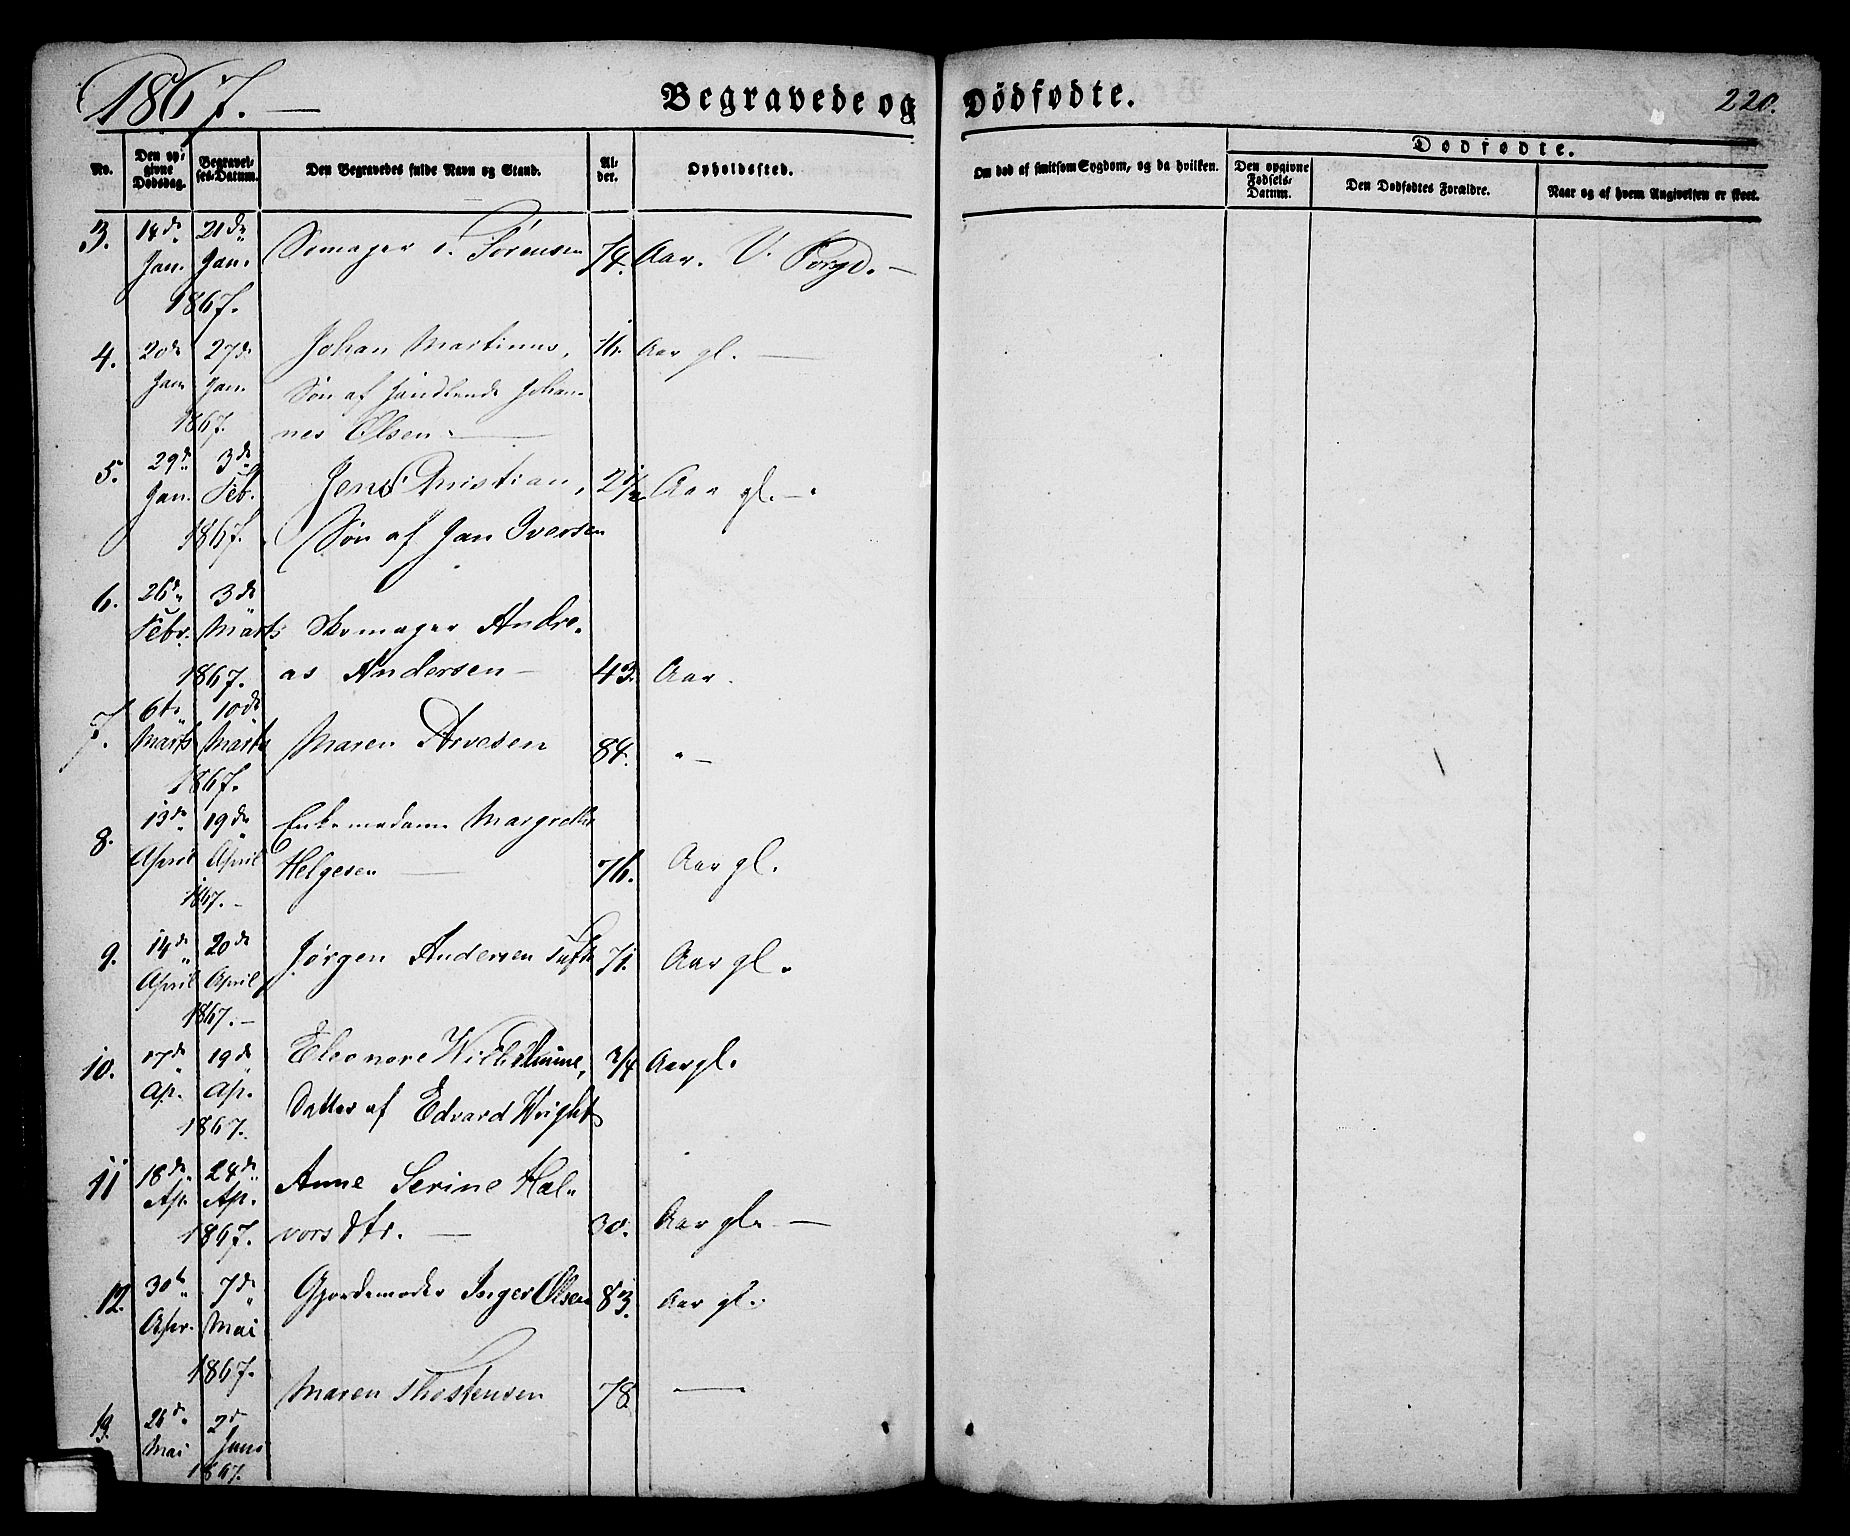 1867. —
Begravede og Dödfødte.
220.
No.
Den opgivne Dødsdag.
Begravelses-Datum.
Den Begravedes fulde Navn og Stand.
Alder.
Opholdssted.
Om død af smitsom Sygdom, og da hvilken.
Dødfødte.
Den opgivne Fødsels-Datum.
Den Dødfødtes Forældre.
Naar og af hvem Angivelsen er skeet.
3. 18de 21de
Jan. Jan. Sørensen 74. Aar. V. Porgd. —
1867.
4. 20de 27de Johan Martinus, 16. Aar gl. —
Jan. Jan. Søn af Johan-
1867. nes Olsen. —
5. 29de 3de Jens Christian, 2 1/2 Aar gl. —
Jan. Feb.
1867. Søn af Jan Iversen
6. 26de 3de
Febr. Marts Skomager Andre-
1867. as Andersen — 43. Aar.
7. 6te 10de
Marts Marts Maren Arvesen 84. " —
1867.
8. 13de 19de Enkemadame Margrethe
April April Helgesen — 76. Aar gl.
1867. —
9. 14de 20de Jørgen Andersen 71. Aar gl.
April April
1867. —
10. 17de 19de Eleonore Wilhelmine, 3/4 Aar gl.
Ap. Ap. Datter af Edvard Wright
1867.
11 18de 24de Anne Serine Hal-
Ap. Ap.
1867. vorsdtr. — 30. Aar gl. —
12. 30te 7de Gjordemoder Inger Olsen 83. Aar gl.
Apr. Mai
1867.
Maren Thostensen 78 —
13. 26de 2d
Mai Juni
1867.